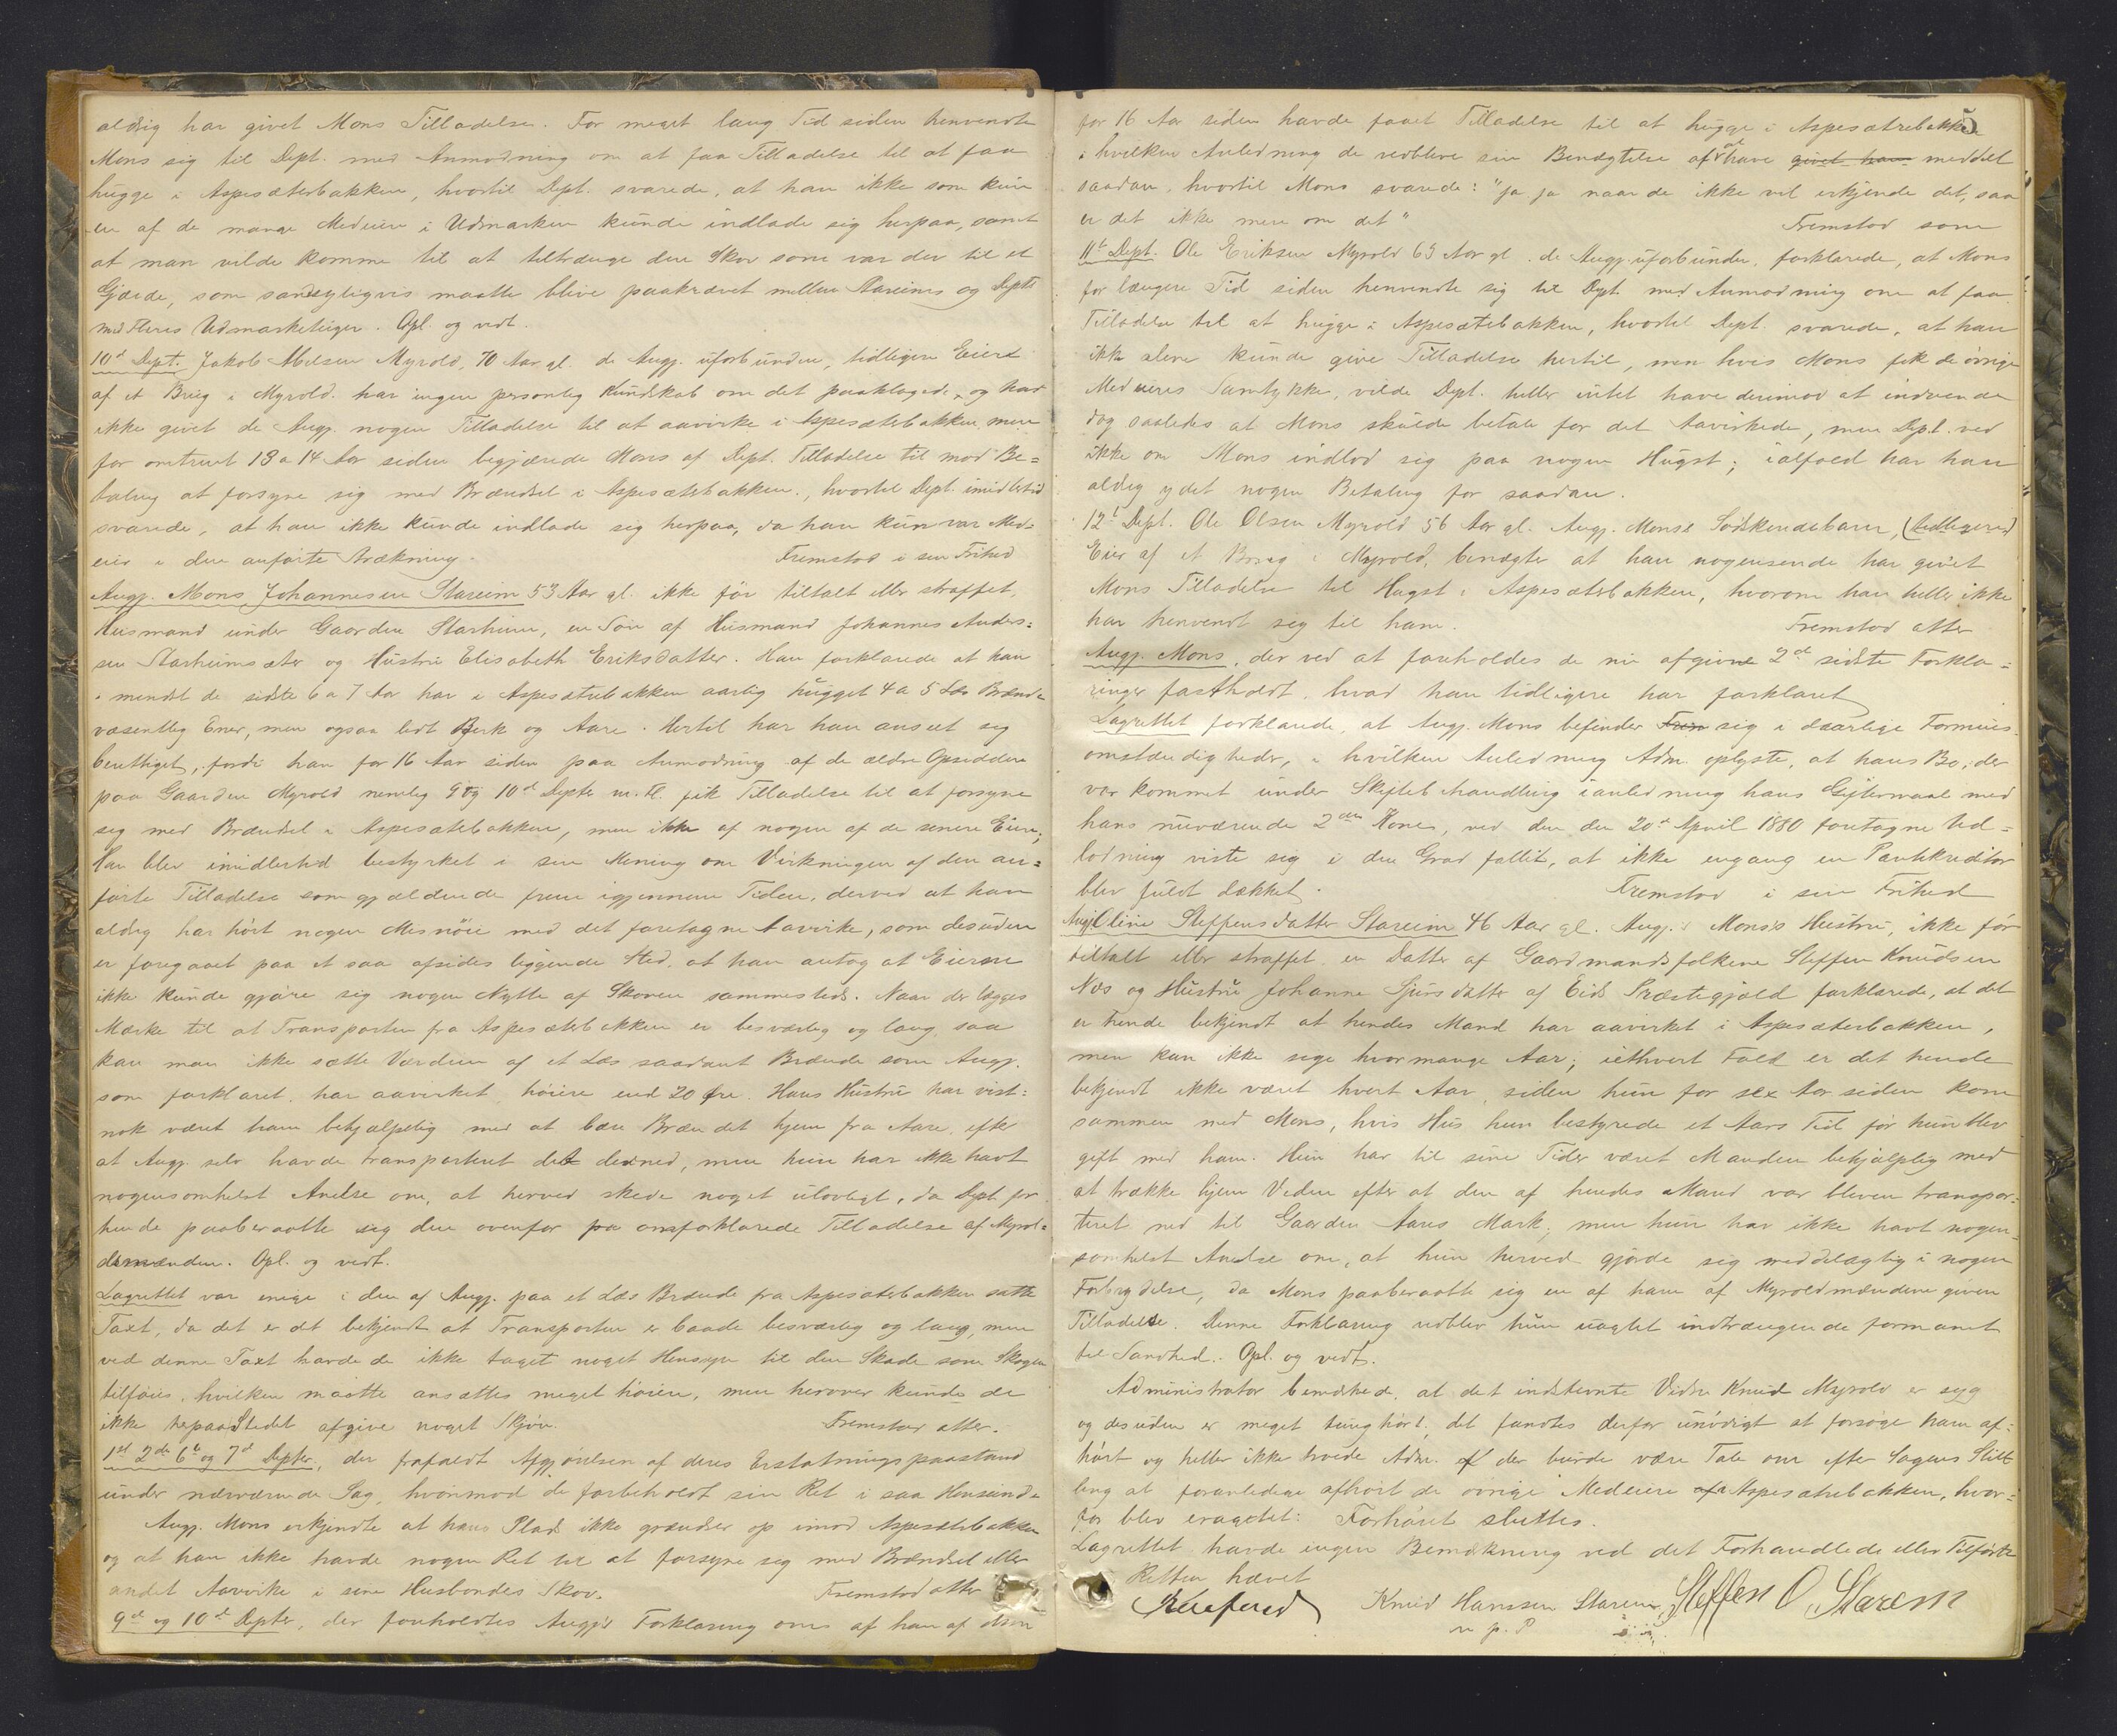 aldrig har givet Mons Tilladelse. For meget lang Tid siden henvendte
Mons sig til Dept. med Anmodning om at faa Tilladelse til at faa
hugge i Aspesæterbakken, hvortil Dept. svarede, at han ikke som kun
en af de mange Medeiere i Udmarken kunde indlade sig herpaa, samt
at man vilde komme til at tiltrænge den Skov som var der til et
Gjærde, som sandsyligvis maatte blive paakrævet mellem Stareims og Depts
med Fleres Udmarksteiger. Opl. og vedt.
10d Dept. Jakob Abelsen Myrold, 70 Aar gl. de Angj. uforbunden, tidligere Eier
af et Brug i Myrold. har ingen personlig Kundskab om det paaklagede, og har
ikke givet de Angj. nogen Tilladelse til at aavirke i Aspesæterbakken, men
for omtrent 13 a 14 Aar siden begjærede Mons af Dept. Tilladelse til mod Be=
taling at forsyne sig med Brændsel i Aspesæterbakken, hvortil Dept. imidlertid
svarede, at han ikke kunde indlade sig herpaa, da han kun var Med=
eier i den anførte Strækning. Fremstod i sin Frihed
Angj. Mons Johannesen Stareim 53 Aar gl. ikke før tiltalt eller straffet,
Husmand under Gaarden Starheim, en Søn af Husmand Johannes Anders=
sen Starheimsæter og Hustru Elisabeth Eriksdatter. Han forklarede at han
i mindst de sidste 6 a 7 Aar har i Aspesæterbakken aarlig hugget 4 a 5 Læs Brænde
væsentlig Ener, men ogsaa lidt Birk og Aare. Hertil har han anseet sig
berettiget, fordi han for 16 Aar siden paa Anmodning af de ældre Opsiddere
paa Gaarden Myrold nemlig 9 og 10d Depter m. Fl. fik Tilladelse til at forsyne
sig med Brændsel i Aspesæterbakken, men ikke af nogen af de senere Eiere;
Han blev imidlertid bestyrket i sin Mening om Virkningen af den an=
førte Tilladelse som gjældende frem igjennem Tiden, derved at han
aldrig har hørt nogen Misnöie med det foretagne Aavirke, som desuden
er foregaaet paa et saa afsides liggende Sted, at han antog at Eierne
ikke kunde gjøre sig nogen Nytte af Skoven sammesteds. Naar der lægges
Mærke til at Transporten fra Aspesæterbakken er besværlig og lang, saa
kan man ikke sætte Værdien af et Læs saadant Brænde som Angj.
som forklaret, har aavirket, høiere end 20 Øre. Hans Hustru har vist=
nok været ham behjælpelig med at bære Brændet hjem fra Aare, efter
at Angj. selv havde transporteret det derned, men hun har ikke havt
nogensomhelst Anelse om, at herved skede noget ulovligt, da Dept. for
hende paaberaabte sig den ovenfor omforklarede Tilladelse af Myrol=
dsmænden. Opl. og vedt.
Lagrettet var enige i den af Angj. paa et Læs Brænde fra Aspesæterbakken satte
Taxt, da det er det bekjendt at Transporten er baade besværlig og lang, men
ved denne Taxt havde de ikke taget noget Hensyn til den Skade som Skogen
tilføies, hvilken maatte ansættes meget høiere, men herover kunde de
ikke her paa Stedet afgive noget Skjøn. Fremstod atter.
1st 2de 6te og 7d Depter, der frafaldt Afgjørelsen af deres Erstatningspaastand
under nærværende Sag, hvorimod de forbeholdt sin Ret i saa Henseende
Angj. Mons erkjendte at hans Plads ikke grændser op imod Aspesæterbakken
og at han ikke havde nogen Ret til at forsyne sig med Brændsel eller
andet Aavirke i sin Husbondes Skov. Fremstod atter
9d og 10d Depter, der foreholdtes Angj's Forklaring om af han af dem
5
for 16 Aar siden havde faaet Tilladelse til at hugge i Aspesæterbakken
i hvilken Anledning de vedbleve sin Benægtelse af at have givet ham meddelt
saadan, hvortil Mons svarede: "ja ja naar de ikke vil erkjende det, saa
er det ikke mere om det" Fremstod som
11t Dept. Ole Eriksen Myrold 63 Aar gl. de Angj. uforbunden, forklarede, at Mons
for længere Tid siden henvendte sig til Dept. med Anmodning om at faa
Tilladelse til at hugge i Aspesæterbakken, hvortil Dept. svarede, at han
ikke alene kunde give Tilladelse hertil, men hvis Mons fik de övrige
Medeieres Samtykke, vilde Dept. heller intet have derimod at indvende
dog saaledes at Mons skulde betale for det Aavirkede, men Dept. ved
ikke om Mons indlod sig paa nogen Hugst; ialfald har han
aldrig ydet nogen Betaling for saadan.
12t Dept. Ole Olsen Myrold 56 Aar gl. Angj. Mons's Sødskendebarn, (tidligere)
Eier af et Brug i Myrold, benægte at han nogensende har givet
Mons Tilladelse til Hugst i Aspesæterbakken, hvorom han heller ikke
har henvendt sig til ham. Fremstod atter
Angj. Mons, der ved at foreholdes de nu afgivne 2de sidste Forkla=
ringer fastholdt, hvad han tidligere har forklaret
Lagrettet forklarede, at Angj. Mons befinder Frem sig i daarlige Formues=
omstændigheder, i hvilken Anledning Adm. oplyste, at hans Bo, der
var kommet under Skiftebehandling ianledning hans Giftermaal med
hans nuværende 2den Kone, ved den den 20d April 1880 foretagne Ud=
lodning viste sig i den Grad fallit, at ikke engang en Pantkreditor
blev fuldt dækket. Fremstod i sin Frihed
Angj. Oline Steffensdatter Stareim 46 Aar gl. Angj. Mons's Hustru, ikke før
tiltalt eller straffet. en Datter af Gaardmandsfolkene Steffen Knudsen
Nos og Hustru Johanne Sjursdatter af Eids Præstegjæld forklarede, at det
er hende bekjendt at hendes Mand har aavirket i Aspesæterbakken,
men kan ikke sige hvor mange Aar; iethvert Fald er det hende
bekjendt ikke været hvert Aar, siden hun for sex Aar siden kom
sammen med Mons, hvis Hus hun bestyrede et Aars Tid før hun blev
gift med ham. Hun har til sine Tider været Manden behjælpelig med
at trække hjem Veden efter at den af hendes Mand var bleven transpor=
teret ned til Gaarden Aares Mark; men hun har ikke havt nogen=
somhelst Anelse om, at hun herved gjorde sig meddelagtig i nogen
Forbrydelse, da Mons paaberaabte sig en af ham af Myroldmændene given
Tilladelse. Denne Forklaring vedblev hun uagtet indtrængende formanet
til Sandhed. Opl. og vedt.
Administrator bemærkede, at det indstevnte Vidne Knud Myrold er syg
og desuden er meget tunghört, det fandtes derfor unödigt at forsøge ham af=
hört og heller ikke troede Adm. at der burde være Tale om efter Sagens Stil
ling at foranledige afhört de övrige Medeiere af Aspesæterbakken, hvor=
for blev eragtet: Forhöret sluttes.
Lagrettet havde ingen Bemærkning ved det Forhandlede eller Tilførte
Retten hævet
Knud Hanssen Stareim, Steffen O. Starem
m p. P